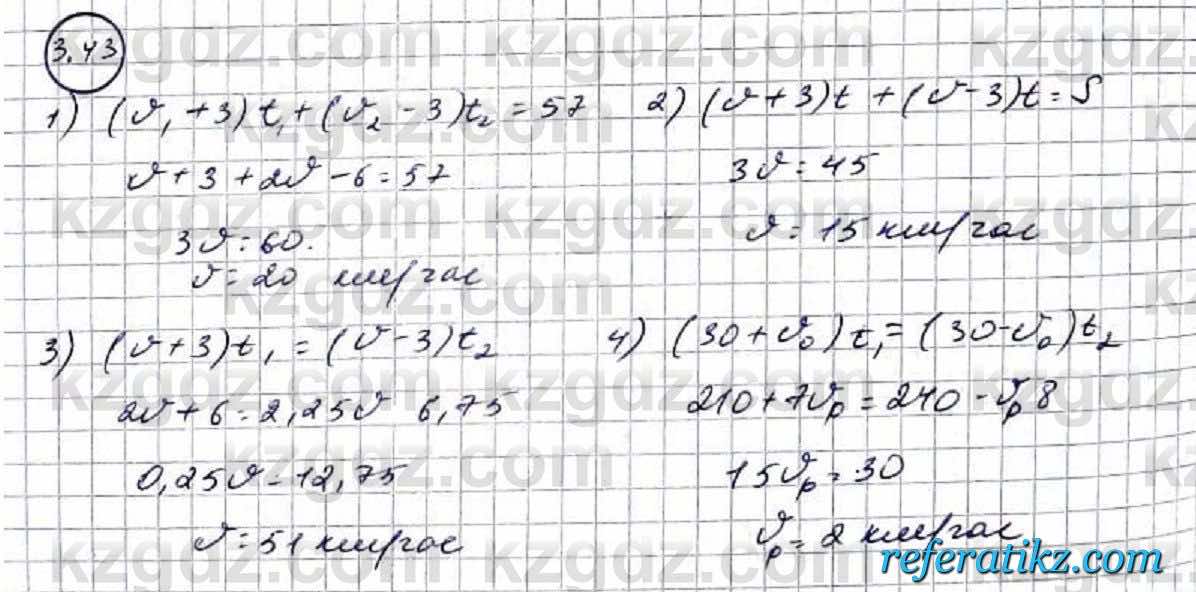 3.43
1) (υ₁ + 3) t₁ + (υ₂ - 3) t₂ = 57
υ + 3 + 2υ - 6 = 57
3υ = 60.
υ = 20 км/час
2) (υ + 3)t + (υ - 3)t = S
3υ = 45
υ = 15 км/час
3) (υ + 3)t₁ = (υ - 3)t₂
2υ + 6 = 2,25υ 6,75
0,25υ = 12,75
υ = 51 км/час
4) (30 + υ₀) t₁ = (30 - υ₀) t₂
210 + 7υₚ = 240 - υₚ8
15υₚ = 30
υₚ = 2 км/час
kzgdz.com
referatikz.com